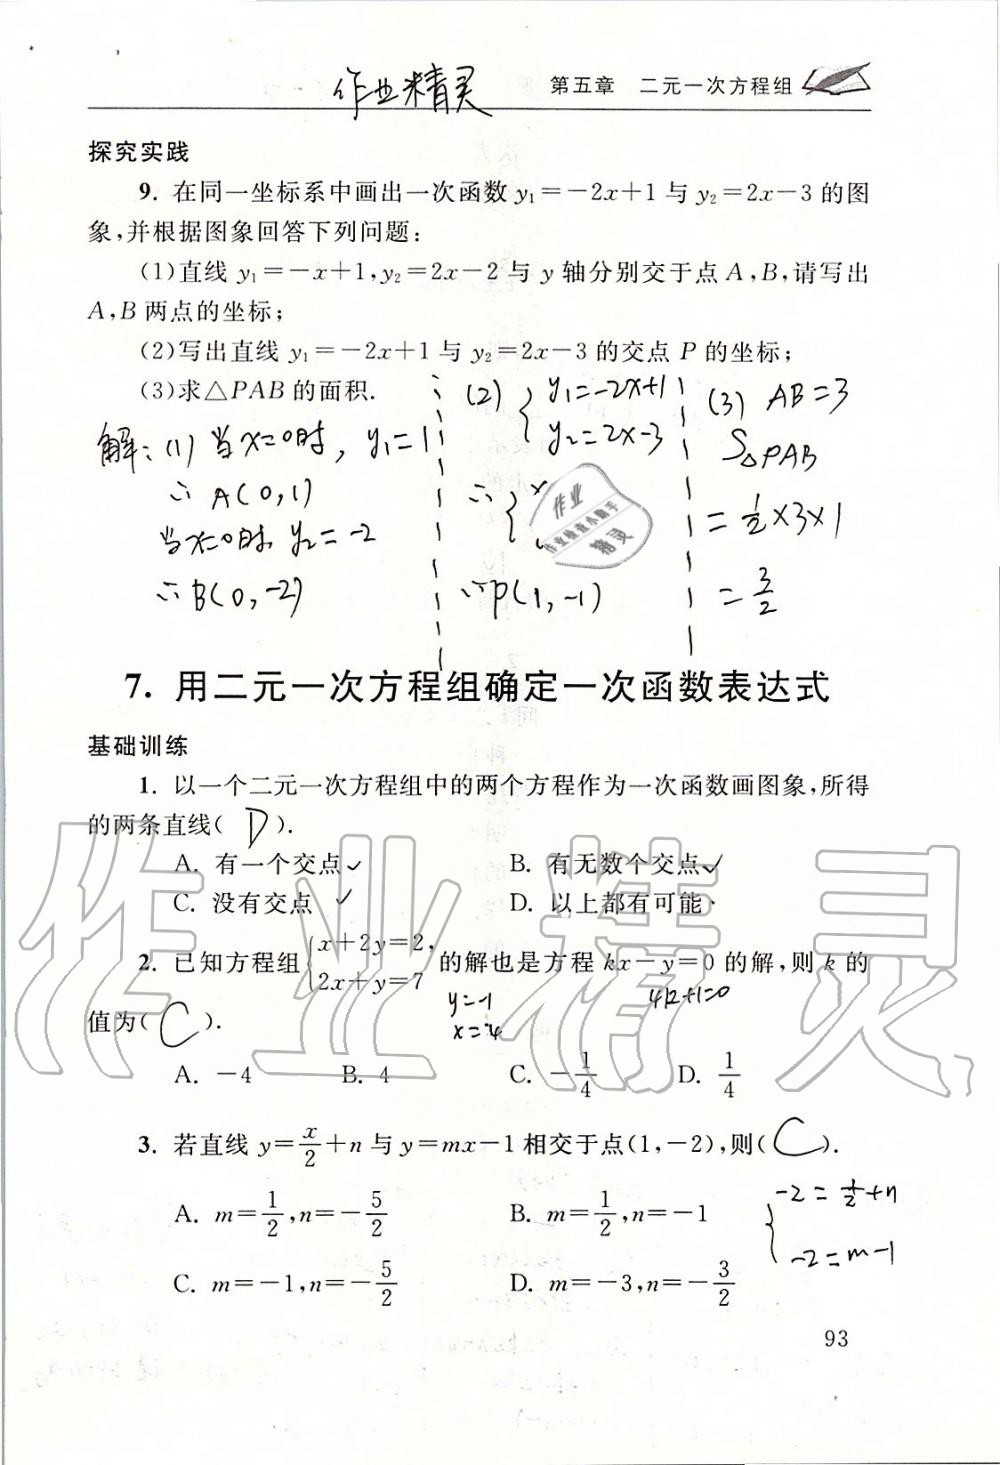 作业精灵 第五章 二元一次方程组
探究实践
9. 在同一坐标系中画出一次函数 y₁=-2x+1 与 y₂=2x-3 的图
象,并根据图象回答下列问题:
(1)直线 y₁=-x+1,y₂=2x-2 与 y 轴分别交于点 A,B,请写出
A,B 两点的坐标;
(2)写出直线 y₁=-2x+1 与 y₂=2x-3 的交点 P 的坐标;
(3)求△PAB 的面积.
解:(1)当x=0时, y₁=1
∴ A(0,1)
当x=0时 y₂=-2
∴B(0,-2)
(2) { y₁=-2x+1
y₂=2x-3
∴ {
作业
作业检查小助手
精灵
∴P(1,-1)
(3) AB=3
S△PAB
=½×3×1
=3/2
7. 用二元一次方程组确定一次函数表达式
基础训练
1. 以一个二元一次方程组中的两个方程作为一次函数画图象,所得
的两条直线( D ).
A. 有一个交点✓ B. 有无数个交点✓
C. 没有交点 ✓ D. 以上都有可能
2. 已知方程组 { x+2y=2, 2x+y=7 的解也是方程 kx-y=0 的解,则 k 的
y=-1 4k+1=0
x=4
值为( C ).
A. -4 B. 4 C. -1/4 D. 1/4
3. 若直线 y=x/2+n 与 y=mx-1 相交于点(1,-2),则( C ).
A. m=1/2,n=-5/2 B. m=1/2,n=-1
C. m=-1,n=-5/2 D. m=-3,n=-3/2
{ -2=½+n
-2=m-1
93
作业精灵